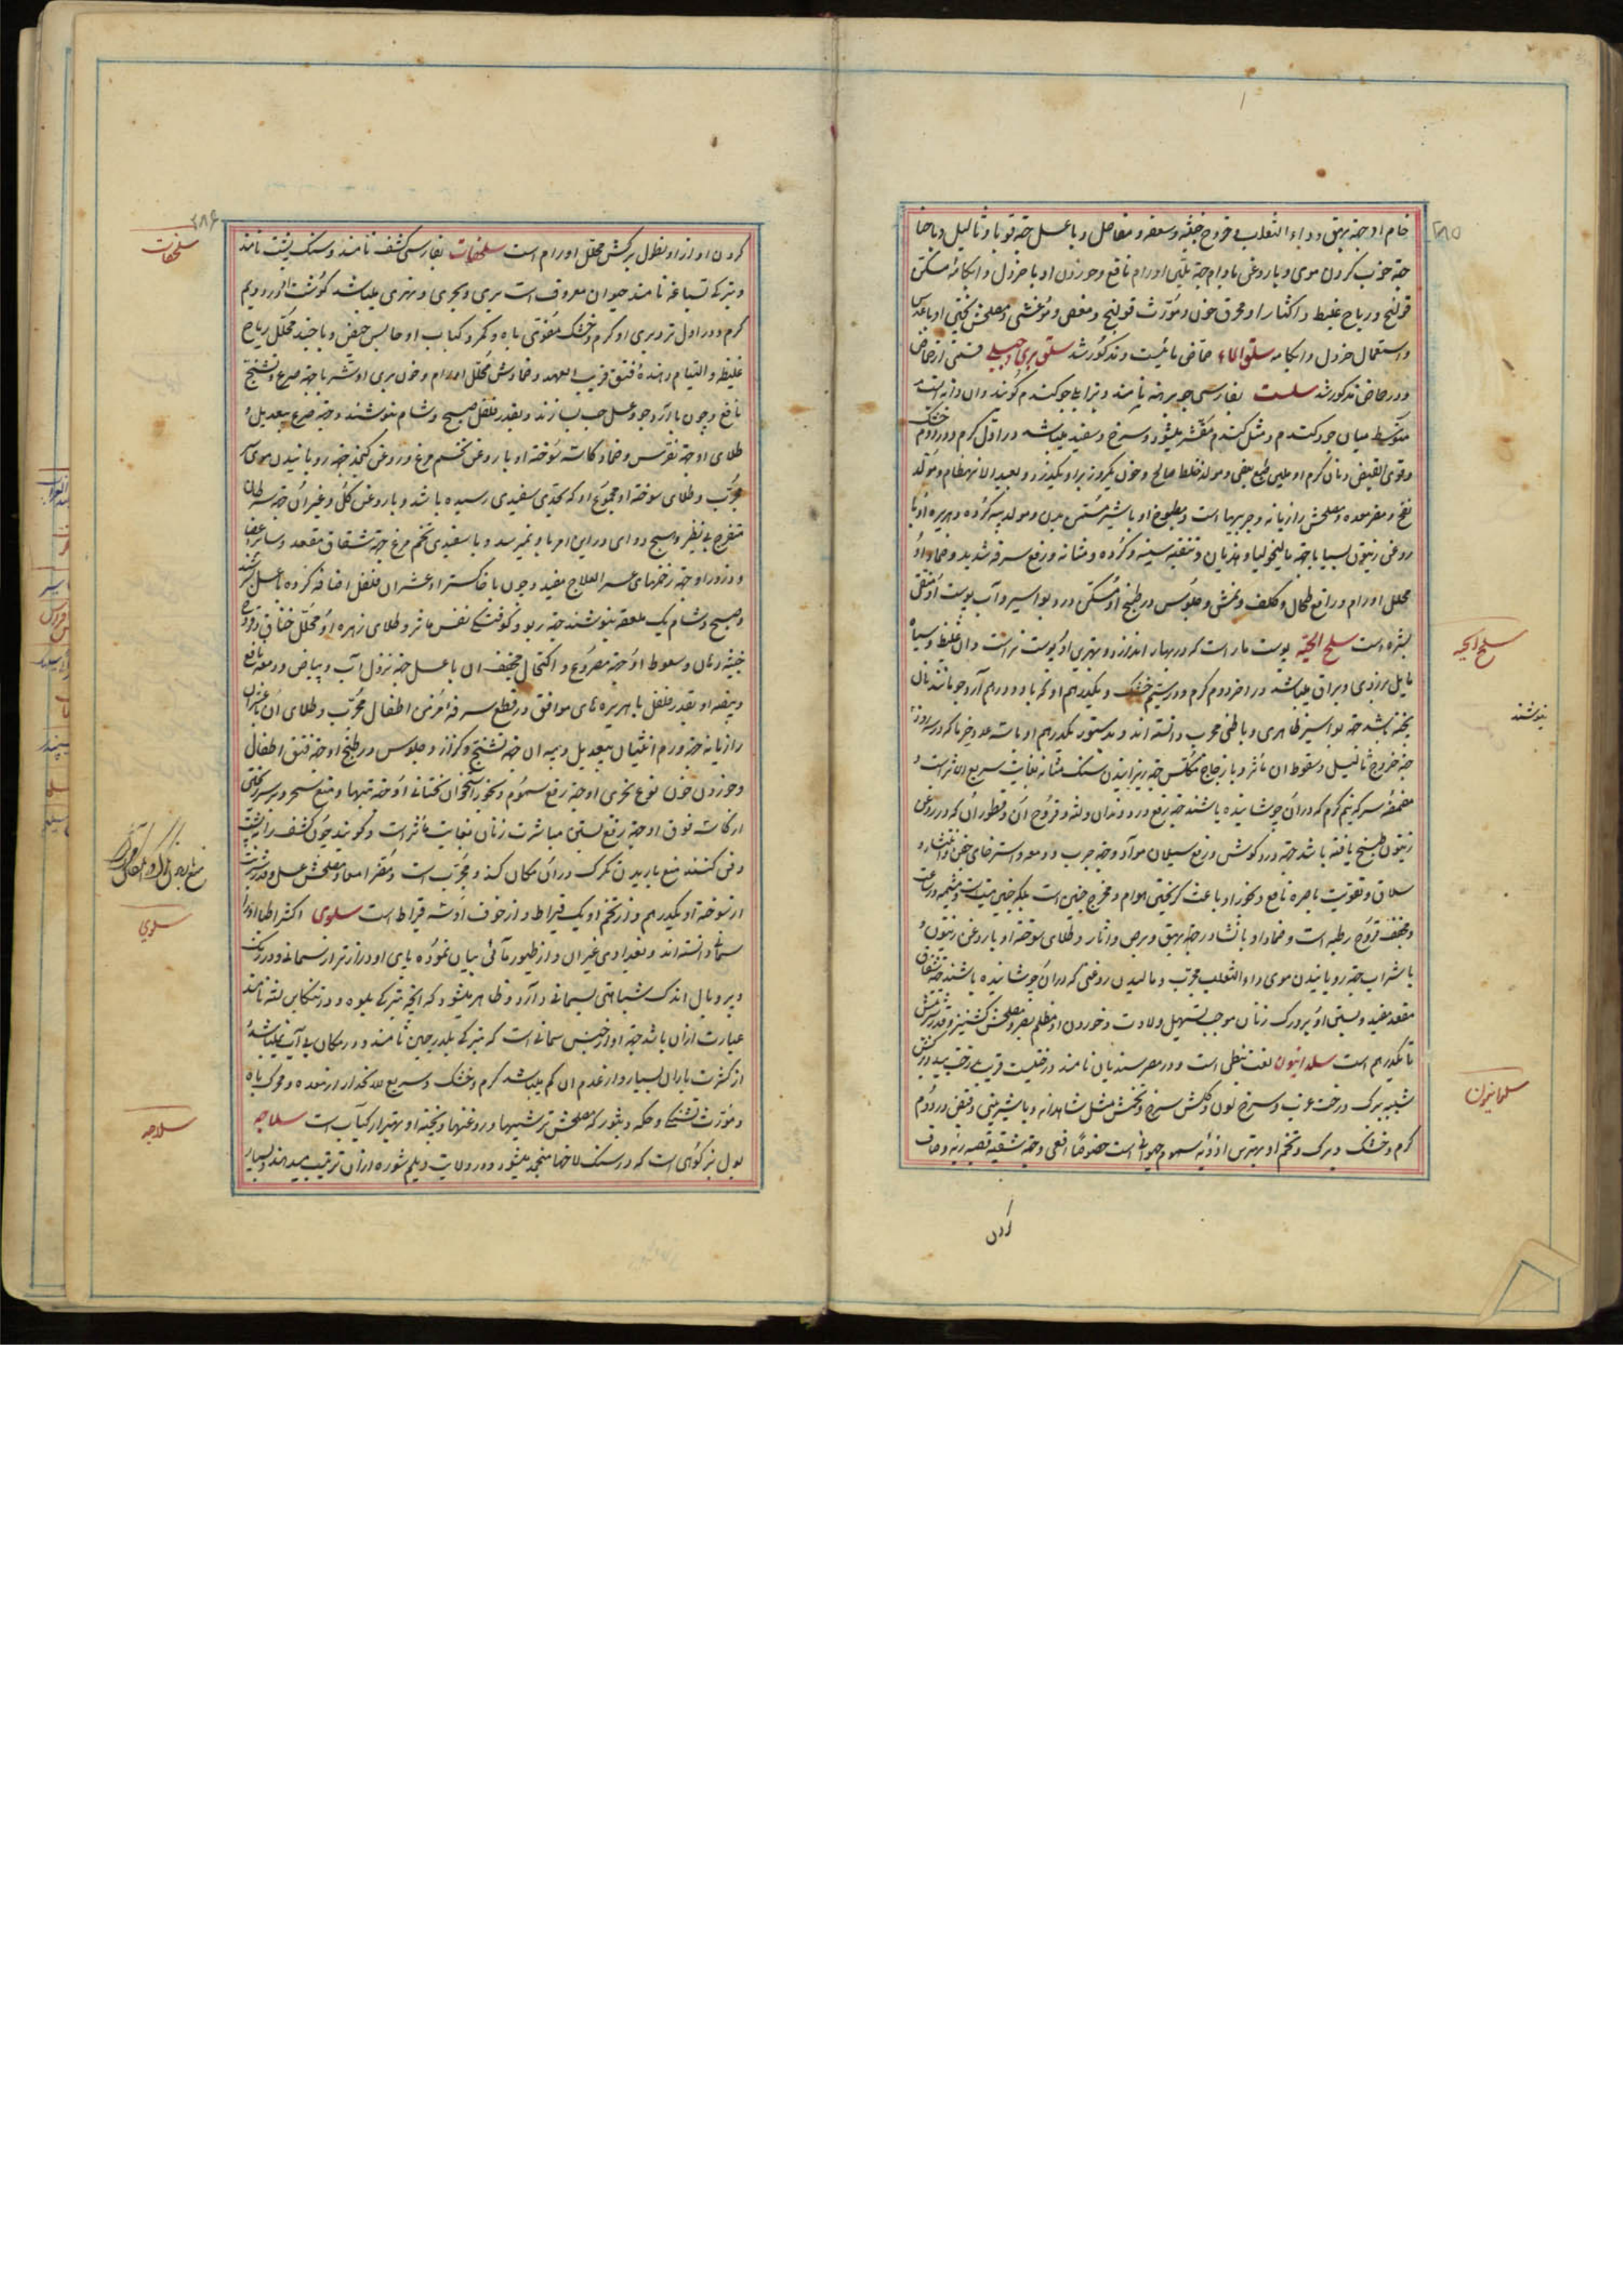 خام او جهة بهق و داء الثعلب و قروح خبیثه و سعفه و مفاصل و با عسل جهة قوبا و ثالیل و با حنا
جهة خوب کردن موی و با روغن بادام جهة تلیین اورام نافع و خوردن او با خردل و آبکامه مسکن
قولنج و ریاح غلیظ و اکثار او محرق خون و مورث قولنج و مغص و مغشی و مصلحش پختن او با عدس
و استعمال خردل و آبکامه سلق الماء حماض مائیست و مذکور شد سلق بری و جبلی قسمی از حماض
و در حماض مذکور شد سلت بفارسی جو برهنه نامند و بترکی جو کندم کویند و آن دانه ایست
متوسط میان جو و کندم و مثل کندم مقشر میشود و سرخ و سفید میباشد در اول کرم و در دوم خشک
و قوی القبض و نان کرم او ملین طبع و مولد خلط صالح و چون یکروز بر او بگذرد بعید الانهضام و مولد
نفخ و مضر معده و مصلحش رازیانه و چربیها است و مطبوخ او با شیر مسمن بدن و مولد
روغن زیتون بسیار جهة مالیخولیا و هذیان و تنقیه سینه و کرده و مثانه و رفع سرفه شدید و ضماد او
محلل اورام و رافع طحال و کلف و نمش و جلوس در طبیخ او مسکن درد بواسیر و آب پوست او منقی
بشره است سلخ الحیّه پوست مار است که در بهار اندازد و بهترین او پوست نر است و آن غلیظ و سیاه
مایل بزردی و براق میباشد در آخر دوم کرم و در سیم خشک و یکدرهم او که با دو درهم آرد جو نان
پخته باشد جهة بواسیر ظاهری و باطنی مجرب دانسته اند و بدستور یکدرهم او با سه عدد خرما که در سه روز
جهة خروج ثالیل و سقوط آن مؤثر و با زجاج مکلس جهة ریزانیدن سنک مثانه بغایت سریع الاثر است و
مضمضه سرکه نیم کرم که در آن جوشانیده باشند جهة رفع درد دندان و لثه و قروح آن و قطور آن که در روغن
زیتون طبخ یافته باشد جهة درد کوش و رفع سیلان مواد و جهة جرب و دمعه و استرخای جفن و انتشار و
سلاق و تقویت باصره نافع و بخور او باعث کریختن هوام و مخرج جنین است بلکه جنین میت و مشیمه
و مجفف قروح رطبه است و ضماد او با نشادر جهة بهق و برص و آثار و طلای سوخته او با روغن زیتون و
با شراب جهة رویانیدن موی داء الثعلب مجرب و مالیدن روغنی که در آن جوشانیده باشند جهة شقاق
مقعد مفید و بستن او بر ورک زنان موجب تسهیل ولادت و خوردن او مظلم بصر و مصلحش کشنیز و قدر شربتش
تا یکدرهم است سلدانیون لغت نبطی است و در مصر سندیان نامند درختیست قریب بدرخت بید و برکش
شبیه ببرک درخت عرب و سرخ لون و کلش سرخ و تخمش مثل شاهدانه و با شیرینی و قبض و در دوم
کرم و خشک و برک و تخم او بهترین ادویه سموم حیوانی است خصوصا افعی و جهة تنقیه قصبه ریه و صاف
کردن
۲۸۵
سلخ الحیه
بنوشند
سلدانیون
کردن آواز و نطول برکش محلل اورام است سلحفات بفارسی کشف نامند و سنک پشت نامند
و بترکی تسباغه نامند حیوان معروف است بری و بحری و نهری میباشد کوشت او در دویم
کرم و در اول تر و بری او کرم و خشک مقوی باه و کمر و کباب او حابس حیض و با جند محلل ریاح
غلیظه و التیام دهنده فتق قریب العهد و ضمادش محلل اورام و خون بری او شربا جهة صرع و تشنج
نافع و چون با آرد جو و عسل حب بسازند و بقدر فلفل صبح و شام بنوشند جهة صرع بیعدیل و
طلای او جهة نقرس و ضماد کاسه سوخته او با روغن تخم مرغ و روغن کنجد جهة رویانیدن موی
مجرب و طلای سوخته مجموع او که بحدی سفیدی رسیده باشد و با روغن کل و غیر آن جهة سرطان
متقرح بی نظیر و هیچ دوای در این امر باو نمیرسد و با سفیدی تخم مرغ جهة شقاق مقعد و سایر اعضا
و ذرور او جهة زخمهای عسر العلاج مفید و چون با خاکستر او عشر آن فلفل اضافه کرده با عسل بسرشند
و صبح و شام یک ملعقه بنوشند جهة ربو و کوفتکی نفس مؤثر و طلای زهره او محلل خناق و قروح
خبیثه دهان و سعوط او جهة مصروع و اکتحال مجفف آن با عسل جهة نزول آب و بیاض و دمعه نافع
و بیضه او بقدر فلفل با هریره های موافق در قطع سرفه مزمن اطفال مجرب و طلای آن
رازیانه جهة ورم انثیان بیعدیل و پیه آن جهة تشنج و کزاز و جلوس در طبیخ او جهة فتق اطفال
و خوردن خون نوع بحری او جهة رفع سموم و بخور استخوان تحتانی او جهة تبها و منع سحر
از کاسه فوق او جهة رفع بستن مباشرت زنان بغایت مؤثر است و کویند چون کشف را بپشت
دفن کنند منع باریدن تکرک در آن مکان کند و مجرب است و مضر امعا و مصلحش عسل و قدر شربت
از سوخته او یکدرهم و از تخم او یک قیراط و از خون او سه قیراط است سلوی اکثر اطبا او را
سمانی دانسته اند و بغدادی غیر آن و از طیور مائی بیان نموده پای او درازتر از سمانی و در رنک
و پر و بال اندک شباهتی بسمانی دارد و ظاهر میشود که آنچه بترکی یلوه و در تنکابن لشه نامند
عبارت از آن باشد چه او از جنس سمانی است که بترکی بلدرچین نامند و در مکان بی آب نمیباشد و
از کثرت باران بسیار و از عدم آن کم میباشد کرم و خشک و سریع الانحدار از معده و محرک باه
و مورث تشنکی و حکه و بثور که مصلحش ترشیها و روغنها و پخته او بهتر از کباب است سلاجه
بول بز کوهی است که در سنک لاخها منجمد میشود و در ولایت دیلم شوره از آن ترتیب میدهند و بسیار
۲۸۶
سلحفات
سلوی
سلاجه